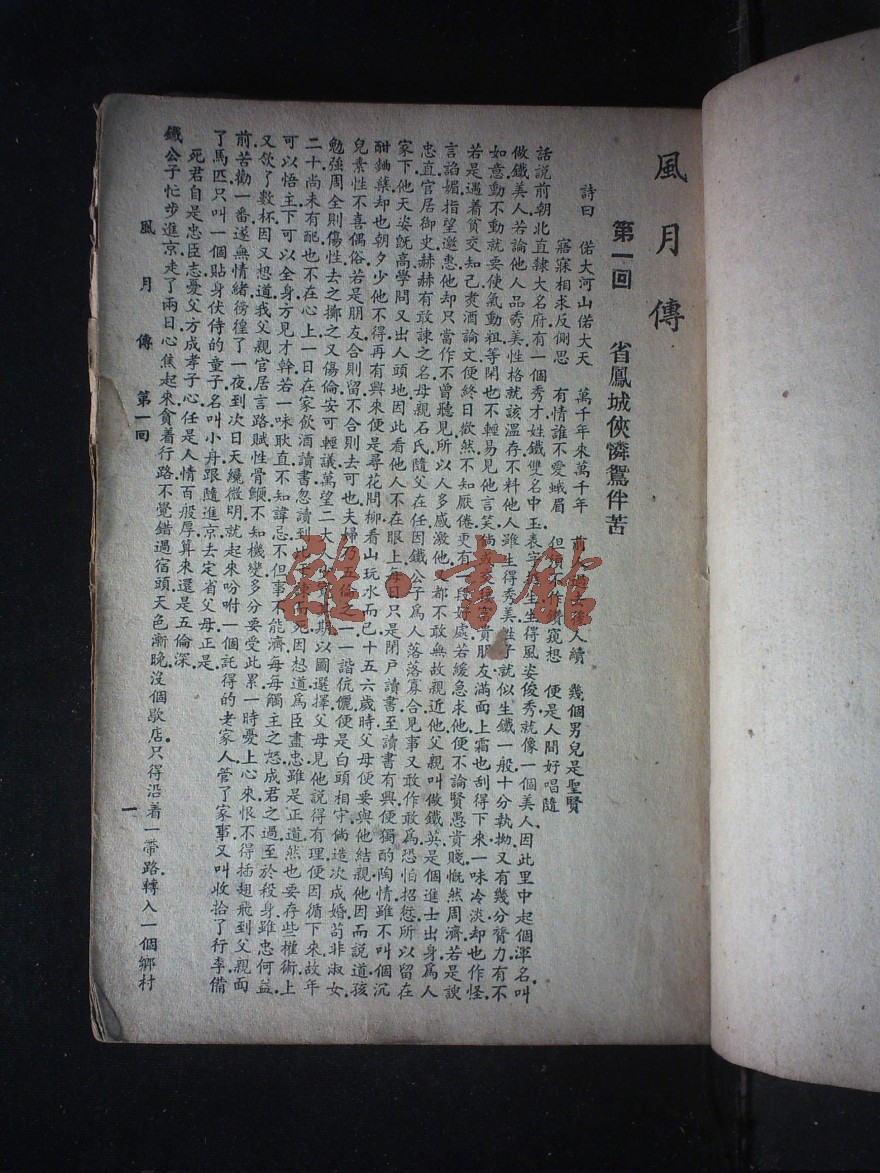 風月傳
第一回 省鳳城俠憐鴛侶苦
詩曰 偌大河山偌大天 萬千年來萬千年 前人過去後人續 幾個男兒是聖賢
寤寐相求反側思 有情誰不愛蛾眉 但須不作鑽窺想 便是人間好唱隨
話說前朝北直隸大名府有一個秀才姓鐵雙名中玉表字 生生得風姿俊秀就像一個美人.因此里中起個渾名.叫
做鐵美人.若論他人品秀美性格就該溫存.不料他人雖生得秀美.性子就似生鐵一般.十分執拗.又有幾分膂力.有不
如意動不動就要使氣動粗.等閑也不輕易見他言笑.倘 交 富貴朋友滿面上霜也刮得下來.一味冷淡.却也作怪.
若是遇着貧交知己.煑酒論文.便終日歡然.不知厭倦.更有 段好處.若緩急求他.便不論賢愚貴賤.慨然周濟.若是諛
言諂媚.指望邀惠.他却只當作不曾聽見.所以人多感激他. 都不敢無故親近他.父親叫做鐵英.是個進士出身.爲人
忠直.官居御史.赫赫有敢諫之名.母親石氏.隨父在任.因鐵公子爲人落落寡合.見事又敢作敢爲.恐怕招愆.所以留在
家下.他天姿旣高.學問又出人頭地.因此看他人不在眼上.每日只是閉户讀書.至讀書有興.便獨酌陶情.雖不叫個沉
酣麯櫱.却也朝夕少他不得.再有興來.便是尋花問柳.看山玩水而已.十五六歲時.父母便要與他結親.他因而說道.孩
兒素性不喜偶俗.若是朋友.合則留.不合則去可也.夫婦乃五倫之一.一諧伉儷.便是白頭相守.倘造次成婚.苟非淑女.
勉強周全則傷性.去之擲之又傷倫.安可輕議.萬望二大人 期.以圖選擇.父母見他說得有理.便因循下來.故年
二十.尚未有配.也不在心上.一日在家飲酒讀書.忽讀到比干諫而死.因想道.爲臣盡忠.雖是正道.然也要存些權術.上
可以悟主.下可以全身.方見才幹.若一味耿直.不知諱忌.不但事不能濟.每每觸主之怒.成君之過.至於殺身.雖忠何益.
又飲了數杯.因又想道.我父親官居言路.賦性骨鯁.不知機變.多分要受此累.一時憂上心來.恨不得插翅飛到父親面
前.苦勸一番.遂無情緒.徬徨了一夜.到次日天纔微明.就起來吩咐一個託得的老家人.管了家事.又叫收拾了行李.備
了馬匹.只叫一個貼身伏侍的童子.名叫小丹.跟隨進京.去定省父母.正是.
死君自是忠臣志 憂父方成孝子心 任是人情百般厚 算來還是五倫深.
鐵公子忙步進京.走了兩日.心焦起來.貪着行路.不覺錯過宿頭.天色漸晚.沒個歇店.只得沿着一帶路.轉入一個鄉村
風月傳 第一回 一